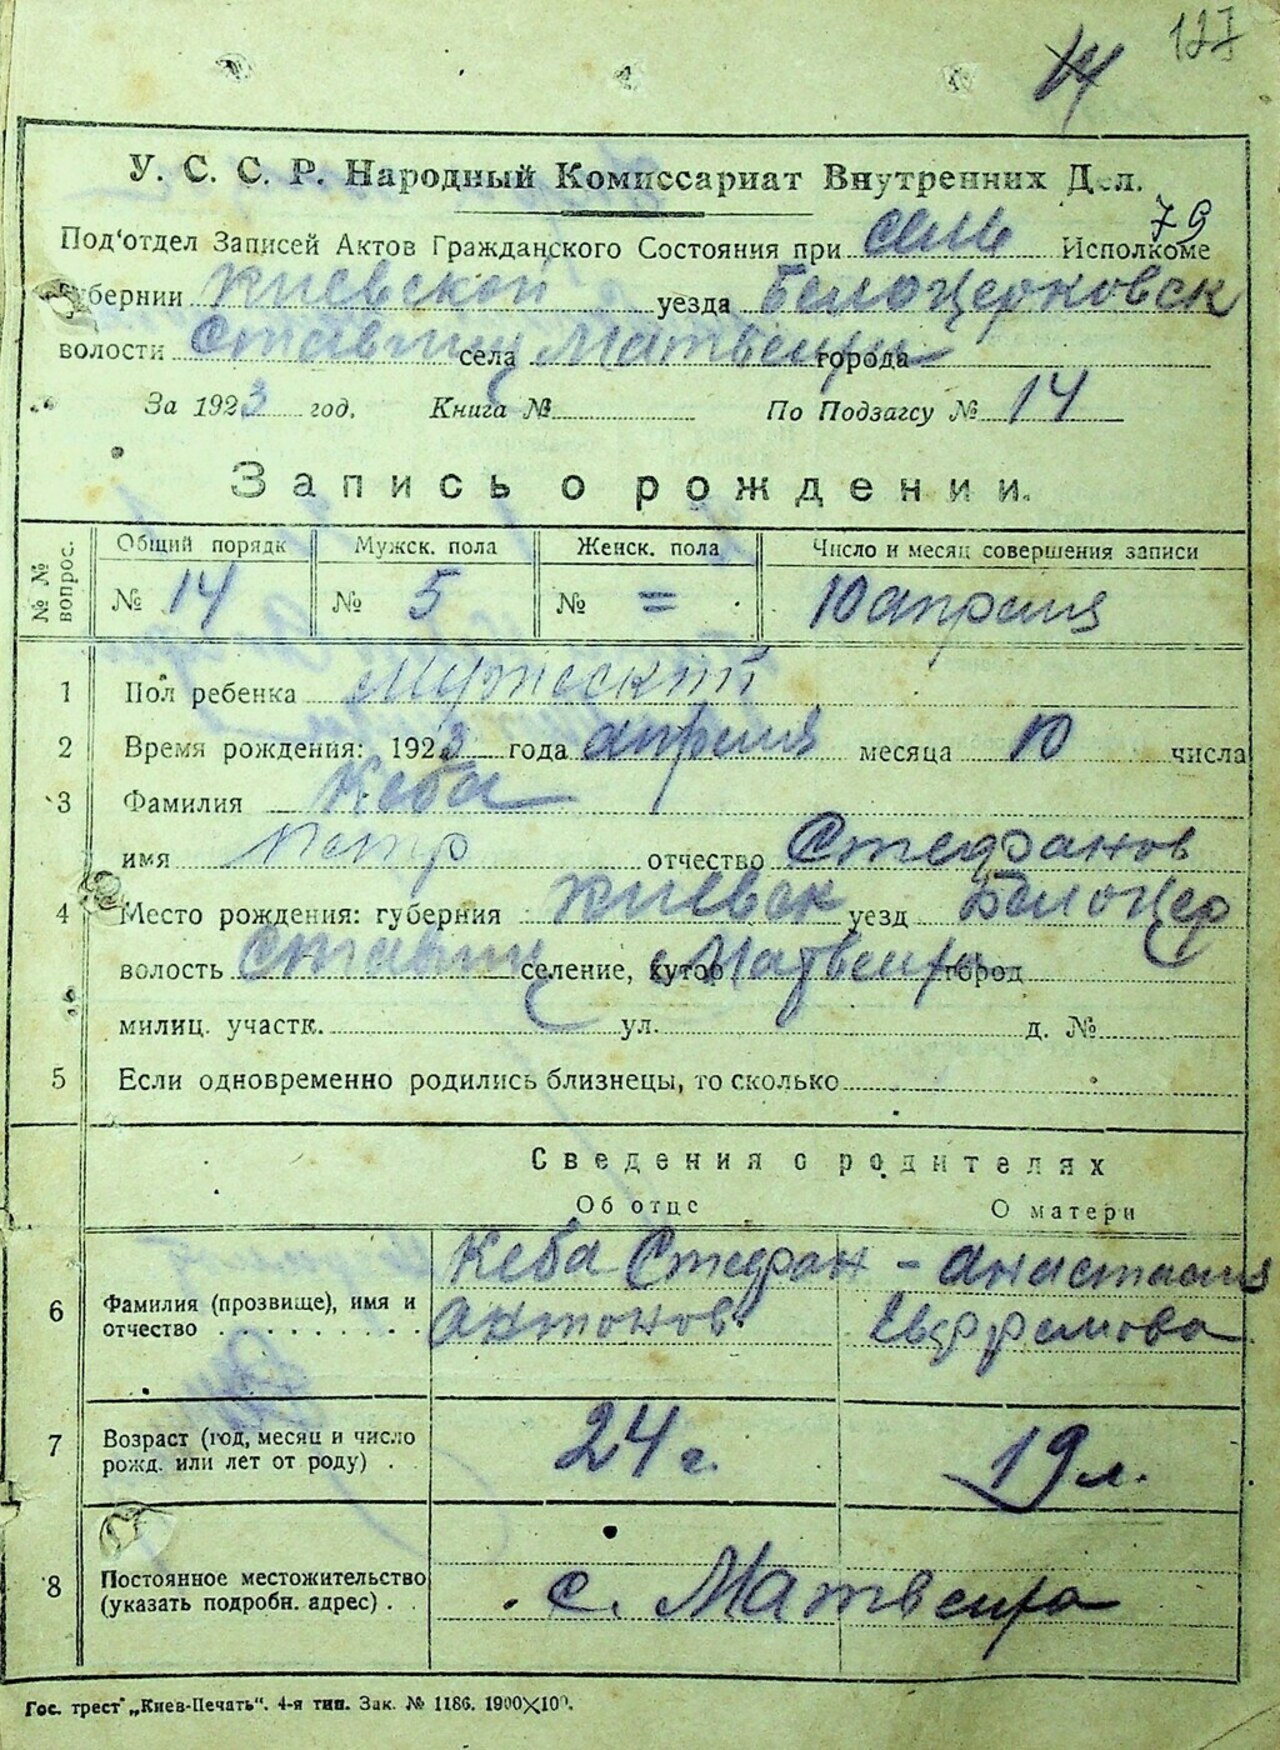 127
14
У. С. С. Р. Народный Комиссариат Внутренних Дел.
79
Под'отдел Записей Актов Гражданского Состояния при сель Исполкоме
губернии Киевской уезда Белоцерковск
волости Ставищ села Матвеиха города
За 1923 год. Книга № По Подзагсу № 14
Запись о рождении.
№ № вопрос. Общий порядк Мужск. пола Женск. пола Число и месяц совершения записи
№ 14 № 5 № = 10 апреля
1 Пол ребенка Мужеский
2 Время рождения: 1923 года апреля месяца 10 числа
3 Фамилия Кеба
имя Петр отчество Стефанов
4 Место рождения: губерния Киевск уезд Белоцер
волость Ставищ селение, хутор Матвеиха город
милиц. участк. ул. д. №
5 Если одновременно родились близнецы, то сколько
Сведения о родителях
Об отце О матери
6 Фамилия (прозвище), имя и отчество Кеба Стефан Антонов - Анастасия Евфремова
7 Возраст (год, месяц и число рожд. или лет от роду) 24 г. 19 л.
8 Постоянное местожительство (указать подробн. адрес) с. Матвеиха
Гос. трест „Киев-Печать". 4-я тип. Зак. № 1186. 1900×100.